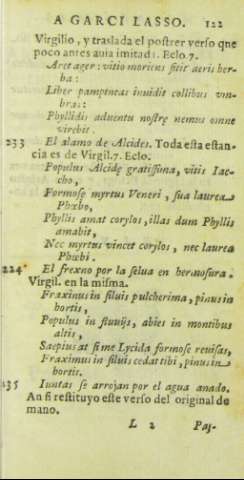 A GARCI LASSO. 122
Virgilio, y traslada el postrer verso que
poco antes auia imitado. Eclo. 7.
Aret ager: vitio moriens sitit aeris her-
ba:
Liber pampineas inuidit collibus vm-
bras:
Phyllidis aduentu nostræ nemus omne
virebit.
233 El alamo de Alcides. Toda esta estan-
cia es de Virgil. 7. Eclo.
Populus Alcidę gratissima, vitis Iac-
cho,
Formosę myrtus Veneri, sua laurea
Phœbo,
Phyllis amat corylos, illas dum Phyllis
amabit,
Nec myrtus vincet corylos, nec laurea
Phœbi.
224 El frexno por la selua en hermosura.
Virgil. en la misma.
Fraxinus in siluis pulcherima, pinus in
hortis,
Populus in fluuijs, abies in montibus
altis,
Saepius at si me Lycida formose reuisas,
Fraximus in siluis cedat tibi, pinus in
hortis.
235 Iuntas se arrojan por el agua anado.
An si restituyo este verso del original de
mano.
L 2 Pas-